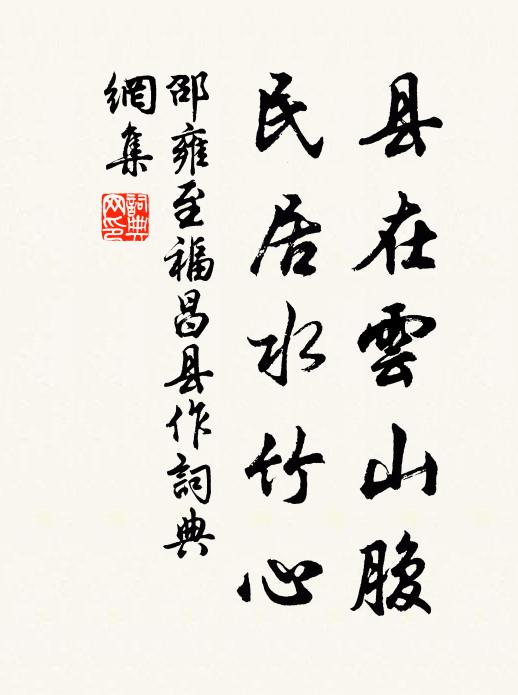 县在雲山腹
民居水竹心
邵雍至福昌县作詞典
網集
詞典
网印